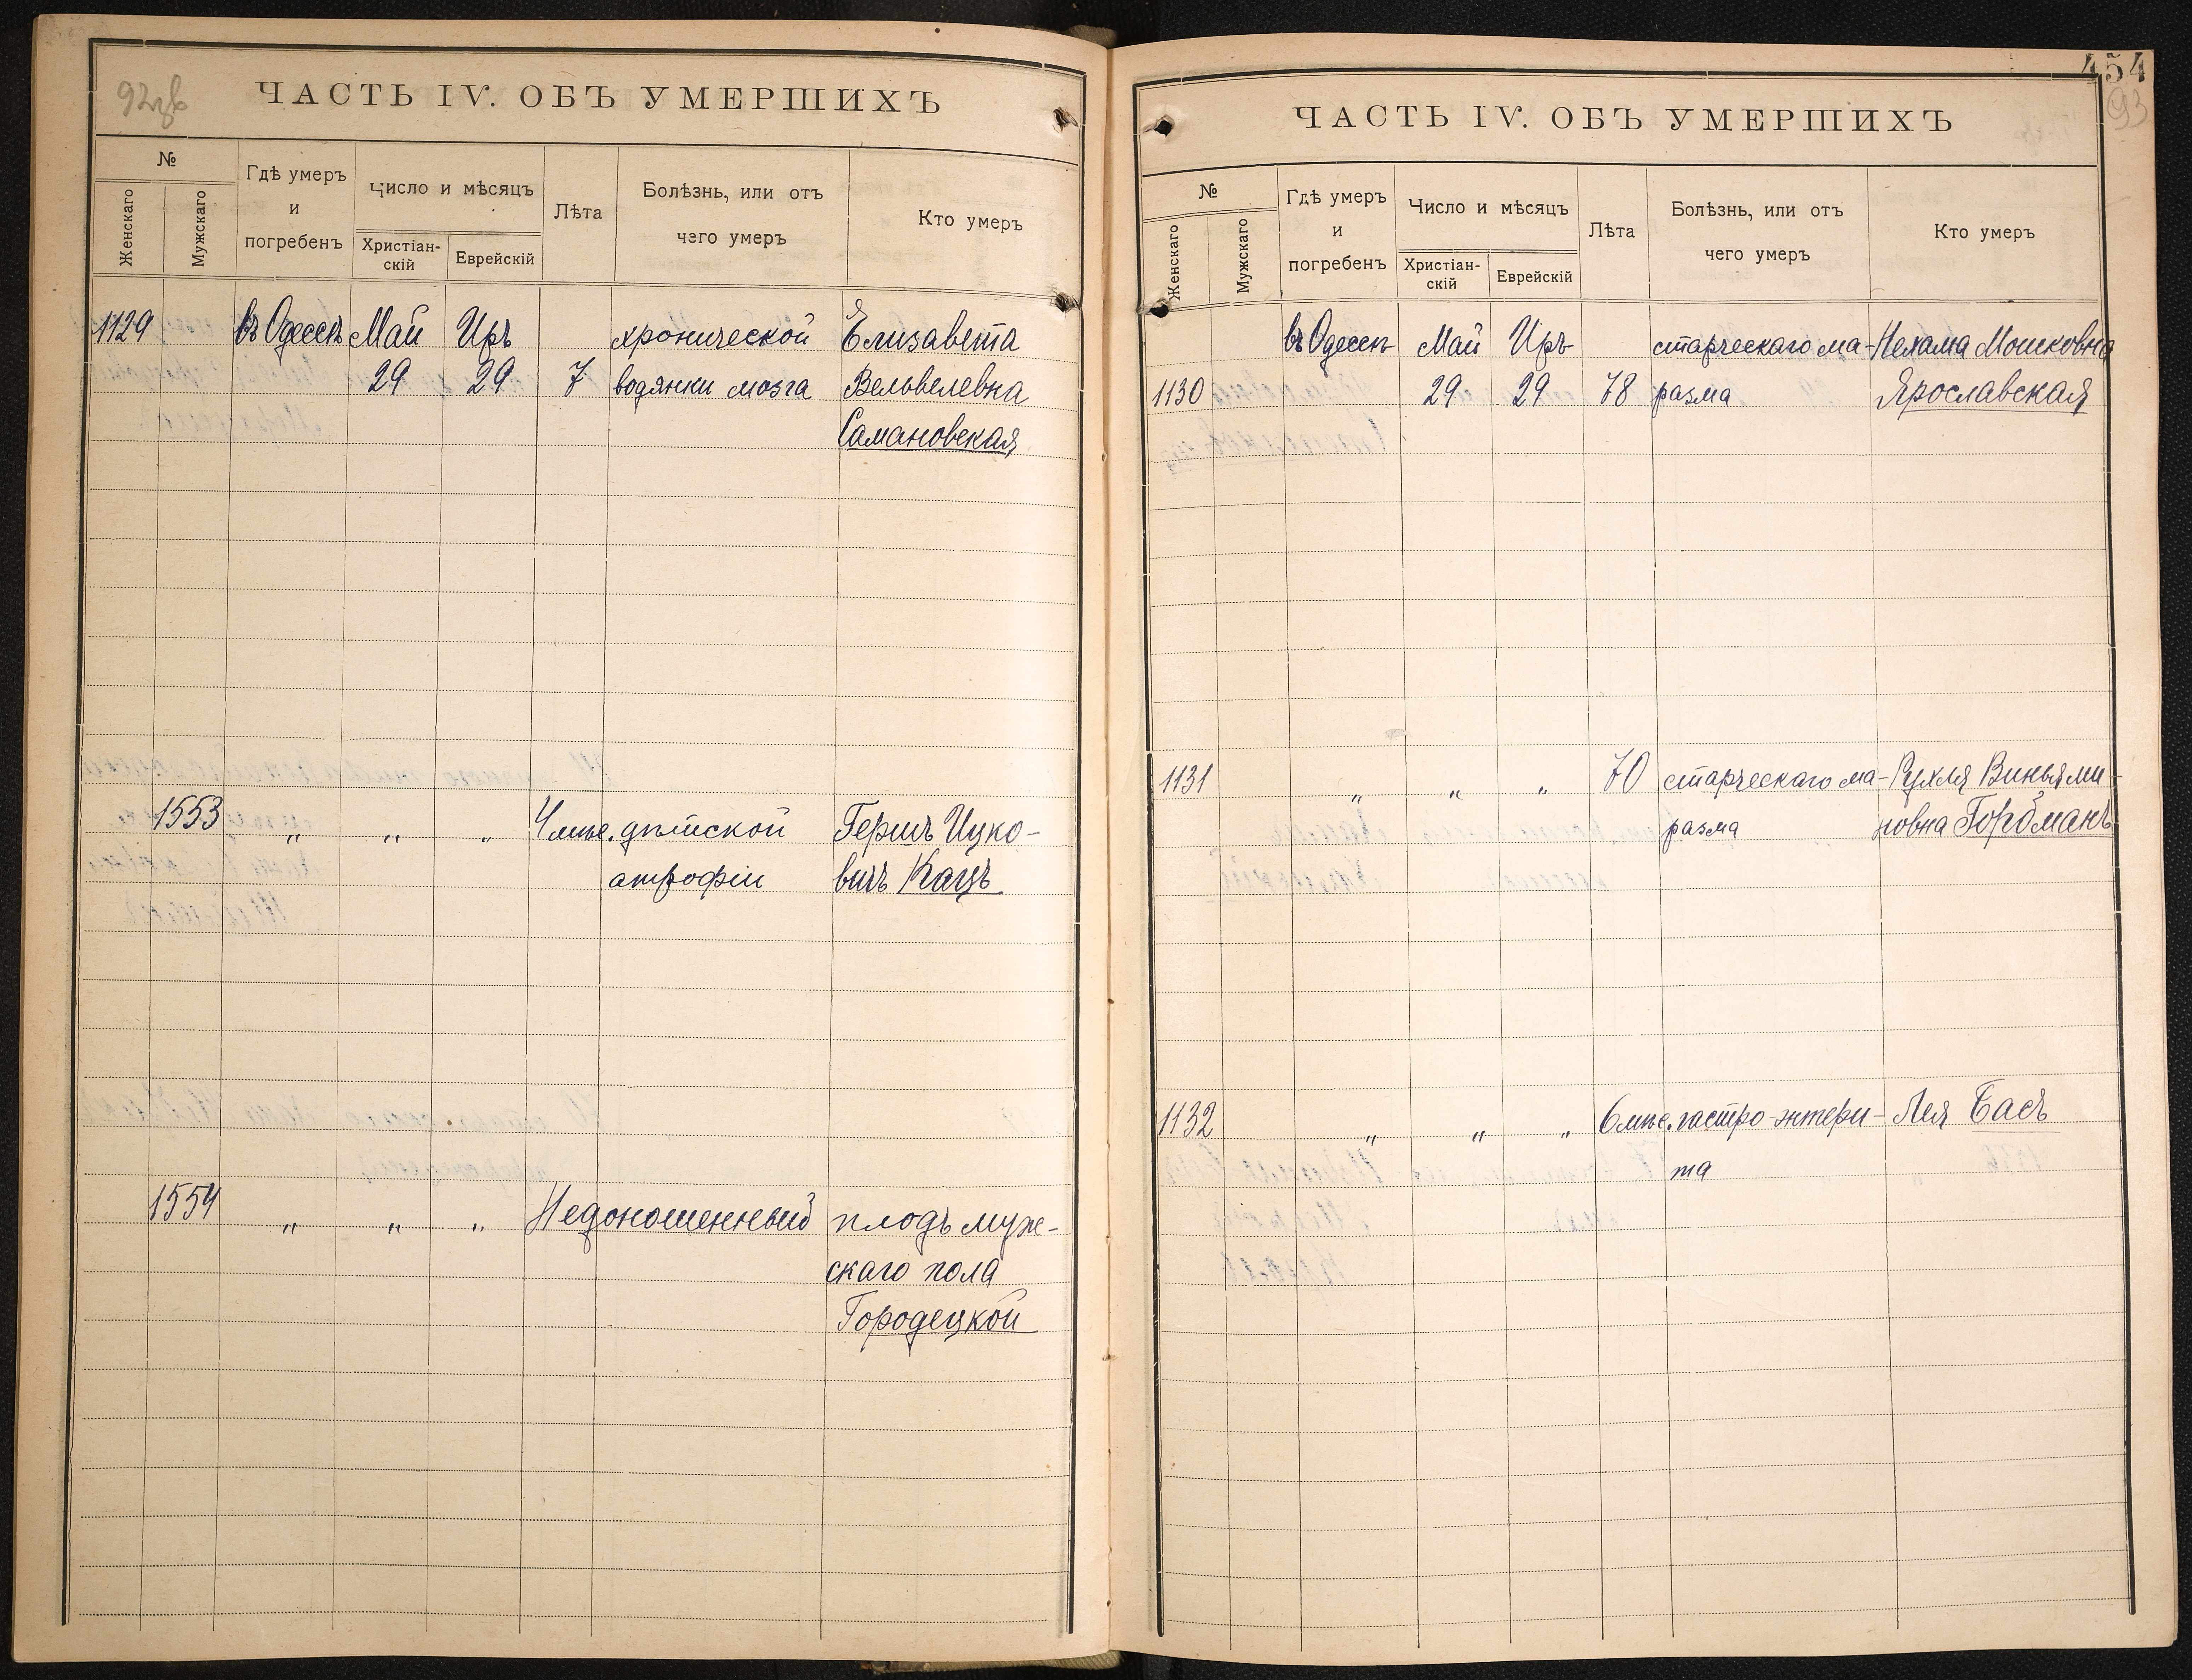 92зв
ЧАСТЬ IV. ОБЪ УМЕРШИХЪ
№
Женскаго
Мужскаго
Гдѣ умеръ
и
погребенъ
Число и мѣсяцъ
Христіан-
скій
Еврейскій
Лѣта
Болѣзнь, или отъ
чего умеръ
Кто умеръ
1129 въ Одессѣ Май Иръ хронической Елизавета
29 29 7 водянки мозга Вельвелевна
Самановская
1553 " " " 4 мѣс. дѣтской Гершъ Ицко-
атрофіи вичъ Кацъ
1554 " " " Недоношенный плодъ муж-
скаго пола
Городецкой
454
93
ЧАСТЬ IV. ОБЪ УМЕРШИХЪ
№
Женскаго
Мужскаго
Гдѣ умеръ
и
погребенъ
Число и мѣсяцъ
Христіан-
скій
Еврейскій
Лѣта
Болѣзнь, или отъ
чего умеръ
Кто умеръ
въ Одессѣ Май Иръ старческаго ма- Нехама Мошковна
1130 29 29 78 разма Ярославская
1131 " " " 70 старческаго ма- Рухля Виньями-
разма новна
1132 " " " 6 мѣс. гастро-энтери- Лея Басъ
та